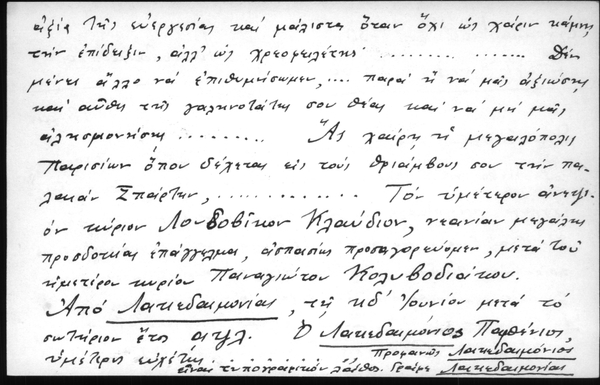 ἀξία τῆς εὐεργεσίας καὶ μάλιστα ὅταν ὄχι ὡς χάριν κάμῃς
τὴν ἐπίδειξιν, ἀλλ' ὡς χρεοφειλέτης ................ Δὲν
μένει ἄλλο νὰ ἐπιθυμήσωμεν, .... παρὰ ἢ νὰ μᾶς ἀξιώσῃς
καὶ αὖθις τῆς γαληνοτάτης σου θέας καὶ νὰ μὴ μᾶς
ἀλησμονήσῃς ......... Ἂς χαίρῃ ἡ μεγαλόπολις
Παρισίων ὅπου δέχεται εἰς τοὺς θριάμβους σου τὴν πα-
λαιὰν Σπάρτην, ............... Τὸν ὑμέτερον ἀνεψι-
ὸν κύριον Λουδοβῖκον Κλαύδιον, νεανίαν μεγάλης
προσδοκίας ἐπάγγελμα, ἀσπασίως προσαγορεύομεν, μετὰ τοῦ
ἡμετέρου κυρίου Παναγιώτου Καλυβοδιάκου.
Ἀπὸ Λακεδαιμονίας, τῇ κδ' Ἰουνίου μετὰ τὸ
σωτήριον ἔτος αψλ. Ὁ Λακεδαιμόνιος Παρθένιος,
ὑμέτερος εὐχέτης ............ Προφανῶς Λακεδαιμονίας
εἶναι τυπογραφικὸν λάθος. Γράφε Λακεδαιμονίας